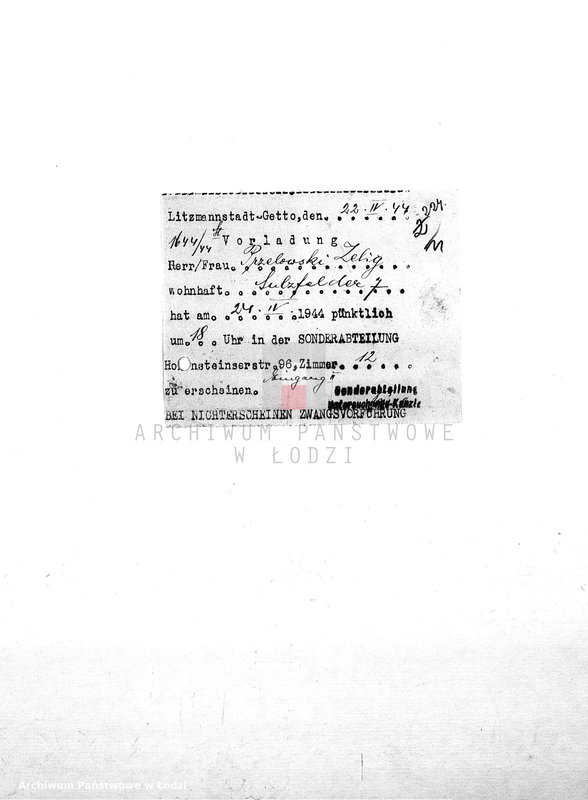 Litzmannstadt-Getto,den. 22.IV.44
1644/44 Vorladung
Herr/Frau. Przelowski Zelig
wohnhaft. Sulzfelder 7
hat am. 24. IV. .1944 pünktlich
um. 18 . Uhr in der SONDERABTEILUNG
Ho nsteinserstr.96,Zimmer. 12
zu erscheinen. Eingang II
Sonderabteilung
Untersuchungs-Kanzlei
BEI NICHTERSCHEINEN ZWANGSVORFÜHRUNG
ARCHIWUM PAŃSTWOWE
W ŁODZI
Archiwum Państwowe w Łodzi